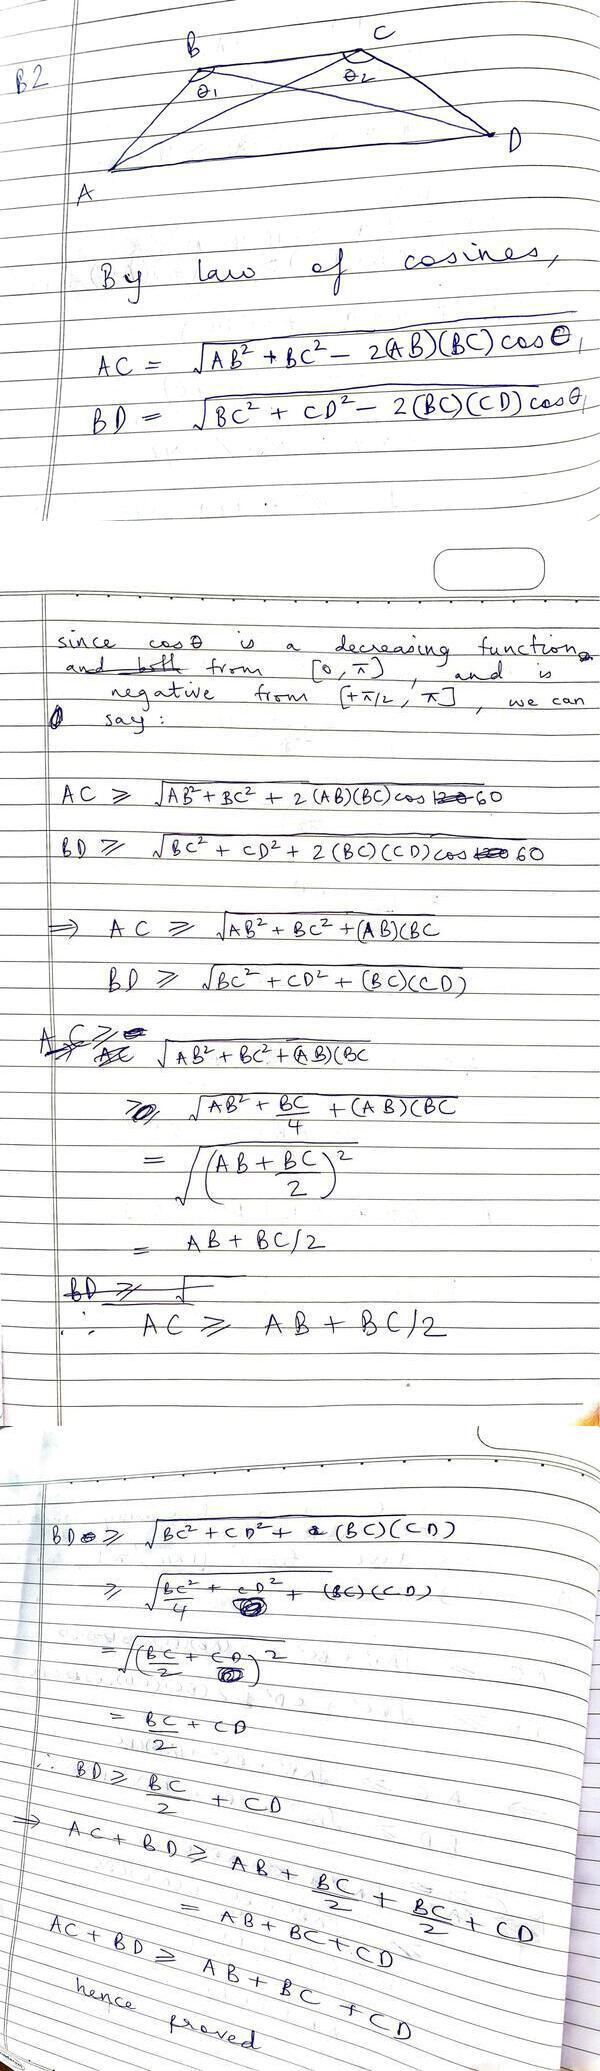 B2
B
C
θ₁
θ₂
A
D
By law of cosines,
AC = √(AB² + BC² – 2(AB)(BC) cosθ₁)
BD = √(BC² + CD² – 2(BC)(CD) cosθ₁)
since cosθ is a decreasing function
and both from [0, π], and is
negative from [+π/2, π], we can
say:
AC ⩾ √(AB² + BC² + 2(AB)(BC) cos 120 60)
BD ⩾ √(BC² + CD² + 2(BC)(CD) cos 120 60)
⇒ AC ⩾ √(AB² + BC² + (AB)(BC
BD ⩾ √(BC² + CD² + (BC)(CD))
AC ⩾
AC √(AB² + BC² + (AB)(BC
⩾ √(AB² + BC/4 + (AB)(BC
= √((AB + BC/2)²)
= AB + BC/2
BD ⩾ √
∴ AC ⩾ AB + BC/2
BD ⩾ √(BC² + CD² + (BC)(CD))
⩾ √(BC²/4 + CD² + (BC)(CD))
= √((BC/2 + CD)²)
= BC/2 + CD
∴ BD ⩾ BC/2 + CD
⇒ AC + BD ⩾ AB + BC/2 + BC/2 + CD
= AB + BC + CD
AC + BD ⩾ AB + BC + CD
hence proved